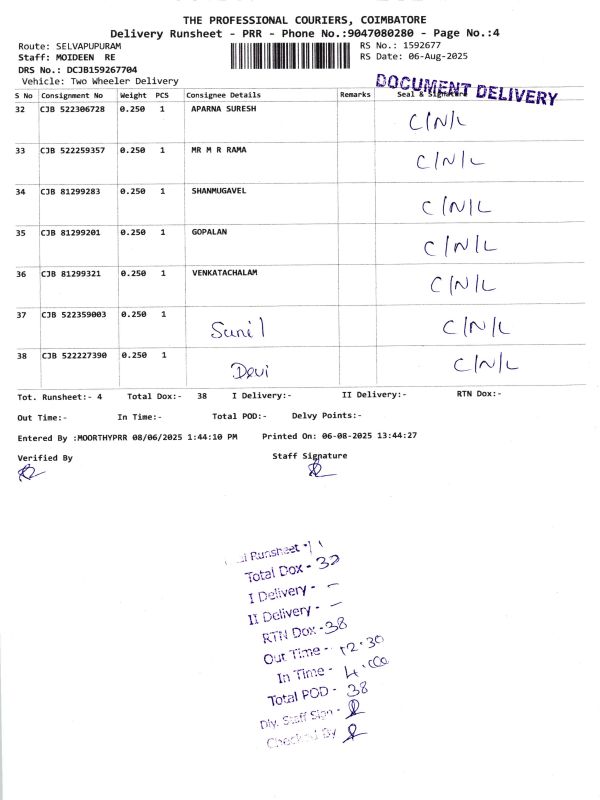 THE PROFESSIONAL COURIERS, COIMBATORE
Delivery Runsheet - PRR - Phone No.:9047080280 - Page No.:4
Route: SELVAPUPURAM
RS No.: 1592677
Staff: MOIDEEN RE
RS Date: 06-Aug-2025
DRS No.: DCJB159267704
Vehicle: Two Wheeler Delivery
DOCUMENT DELIVERY
S No Consignment No Weight PCS Consignee Details Remarks Seal & Signature
32 CJB 522306728 0.250 1 APARNA SURESH C/N/L
33 CJB 522259357 0.250 1 MR M R RAMA C/N/L
34 CJB 81299283 0.250 1 SHANMUGAVEL C/N/L
35 CJB 81299201 0.250 1 GOPALAN C/N/L
36 CJB 81299321 0.250 1 VENKATACHALAM C/N/L
37 CJB 522359003 0.250 1 Sunil C/N/L
38 CJB 522227390 0.250 1 Devi C/N/L
Tot. Runsheet:- 4 Total Dox:- 38 I Delivery:- II Delivery:- RTN Dox:-
Out Time:- In Time:- Total POD:- Delvy Points:-
Entered By :MOORTHYPRR 08/06/2025 1:44:10 PM Printed On: 06-08-2025 13:44:27
Verified By Staff Signature
Runsheet -
Total Dox -
I Delivery - –
II Delivery - –
RTN Dox - 38
Out Time - 12.30
In Time -
Total POD - 38
Dly. Staff Sign -
Checked By